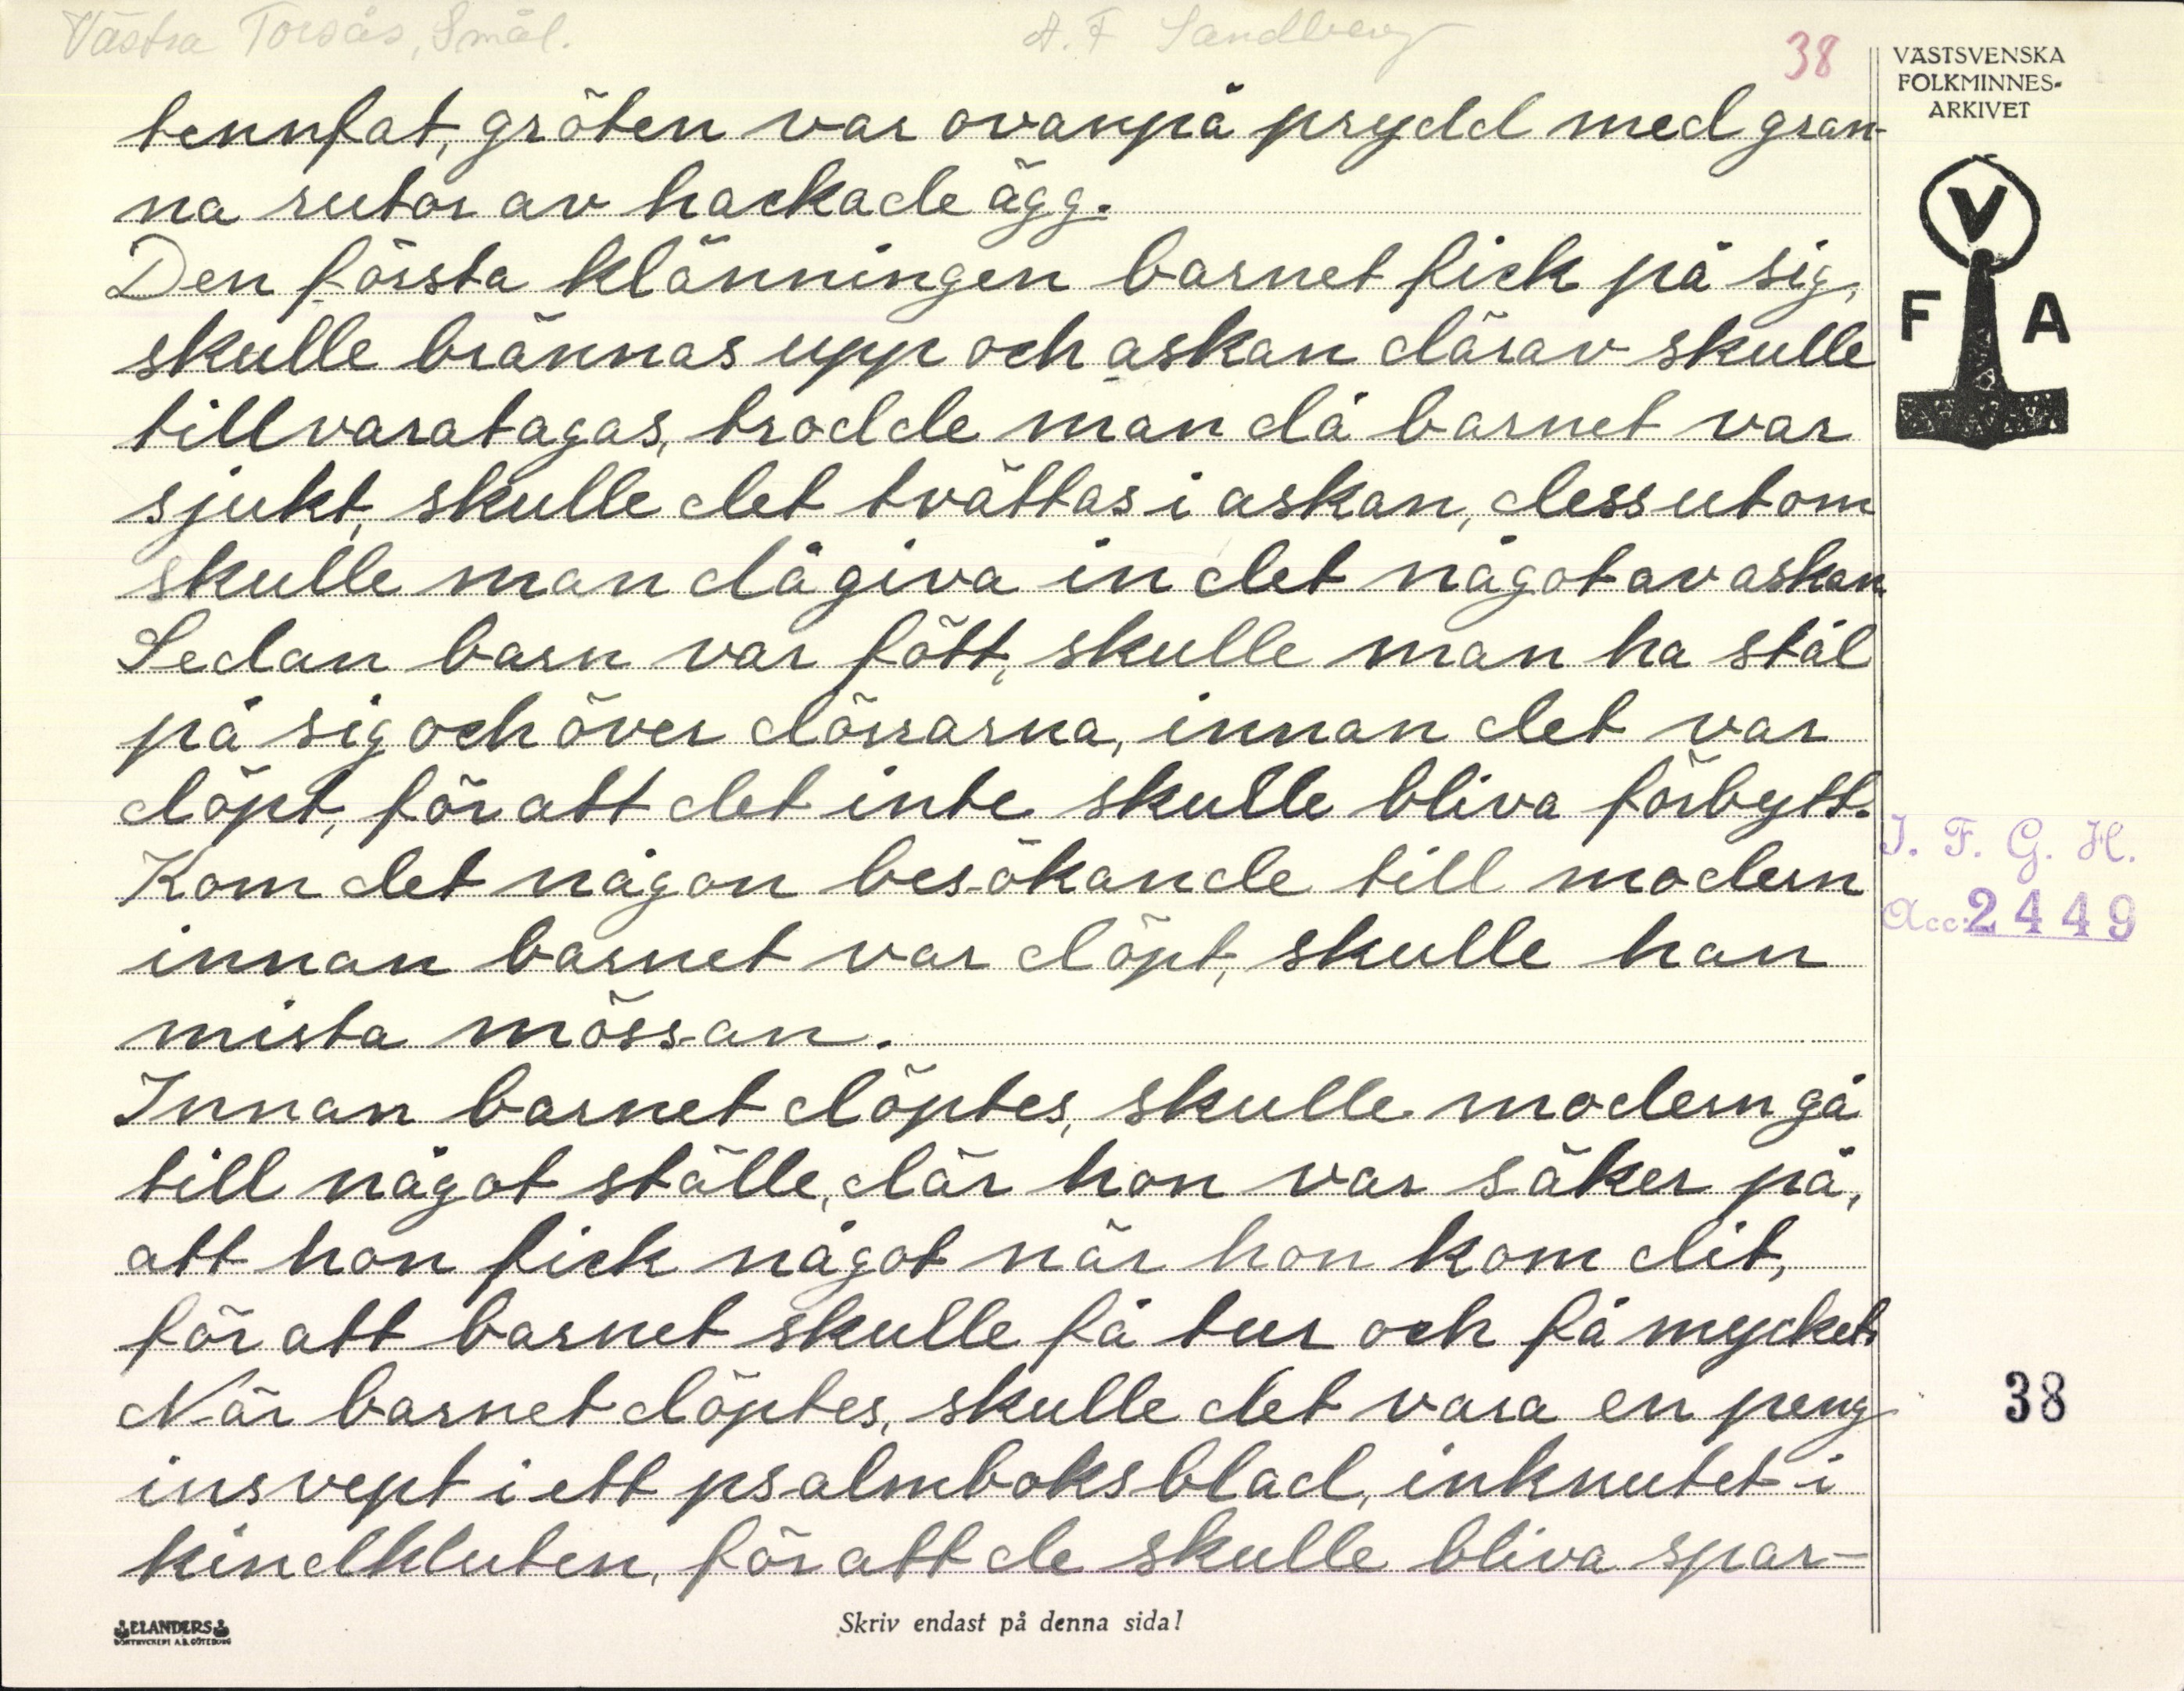 Västra Torsås, Smål. A. F Sandberg 38
VÄSTSVENSKA
FOLKMINNES-
ARKIVET
V
F A
tennfat, gröten var ovanpå prydd med gran-
na rutor av hackade ägg.
Den första klänningen barnet fick på sig,
skulle brännas upp och askan därav skulle
tillvaratagas, trodde man då barnet var
sjukt, skulle det tvättas i askan, dessutom
skulle man då giva in det något av askan.
Sedan barn var fött, skulle man ha stål
på sig och över dörrarna, innan det var
döpt, för att det inte skulle bliva förbytt.
Kom det någon besökande till modern
innan barnet var döpt, skulle han
mista mössan.
Innan barnet döptes, skulle modern gå
till något ställe, där hon var säker på,
att hon fick något när hon kom dit,
för att barnet skulle få tur och få mycket.
När barnet döptes, skulle det vara en peng
insvept i ett psalmboksblad, inknutet i
kindkluten, för att de skulle bliva spar-
I. F. G. H.
Acc. 2449
38
ELANDERS
BOKTRYCKERI A.B. GÖTEBORG
Skriv endast på denna sida!